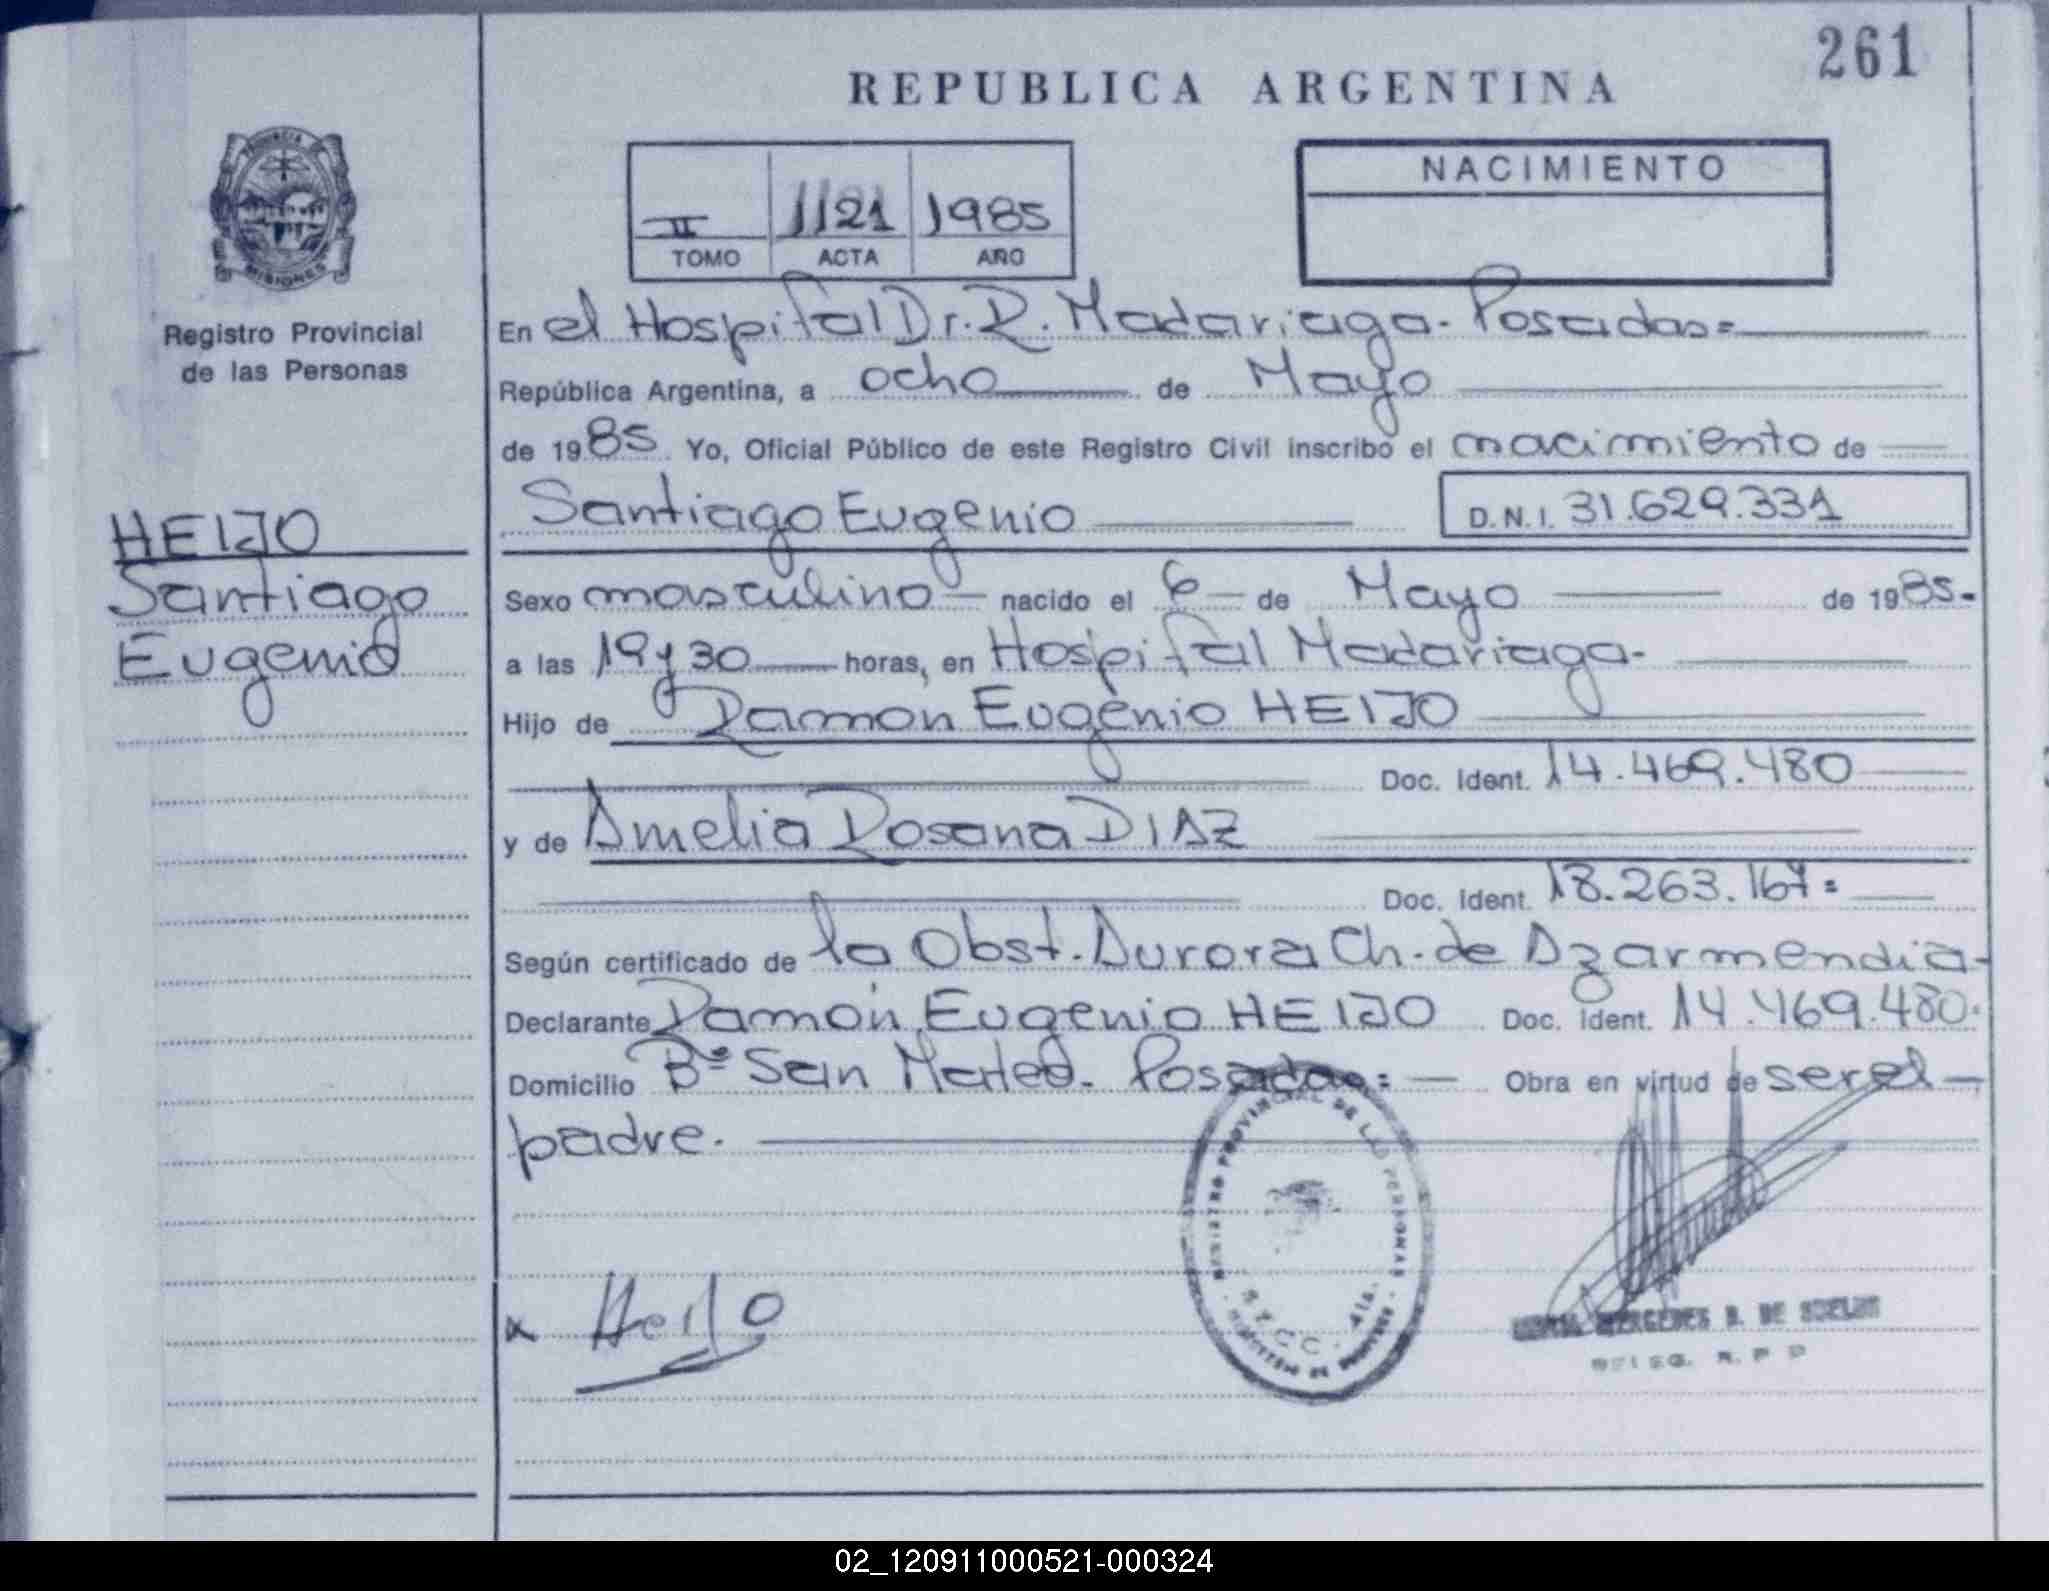 261
REPUBLICA ARGENTINA
PROVINCIA
MISIONES
Registro Provincial
de las Personas
II 1121 1985
TOMO ACTA AÑO
NACIMIENTO
En el Hospital Dr. R. Madariaga. Posadas=
República Argentina, a ocho de Mayo
de 1985 Yo, Oficial Público de este Registro Civil inscribo el nacimiento de
Santiago Eugenio D.N.I. 31.629.331
HEIJO
Santiago
Eugenio
Sexo masculino nacido el 6 de Mayo de 1985-
a las 19 y 30 horas, en Hospital Madariaga-
Hijo de Ramon Eugenio HEIJO
Doc. Ident. 14.469.480
y de Amelia Rosana DIAZ
Doc. Ident. 18.263.167=
Según certificado de la Obst. Aurora Ch. de Azarmendia-
Declarante Ramón Eugenio HEIJO Doc. Ident. 14.469.480.
Domicilio Bº San Mateo. Posadas= Obra en virtud de ser el
padre.
REGISTRO PROVINCIAL DE LAS PERSONAS
x Heijo
MERCEDES B. DE
02_120911000521-000324